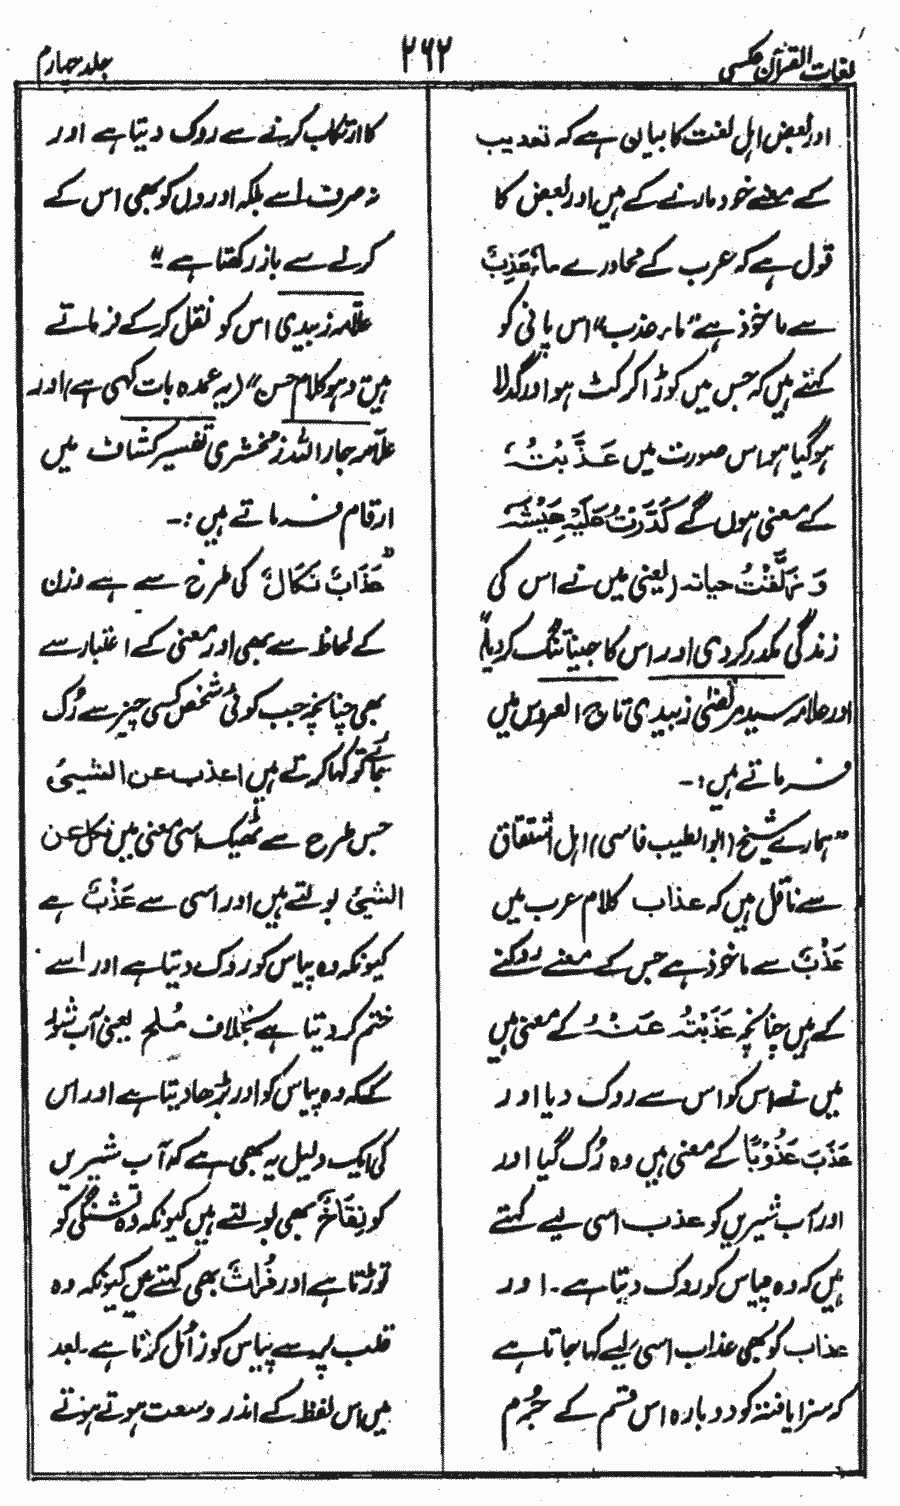 لغات القرآن عکسی
۲۶۲
جلد چہارم
اور بعض اہل لغت کا بیان ہے کہ تعذیب
کے معنے خود مارنے کے ہیں اور بعض کا
قول ہے کہ عرب کے محاورے مَاءٌ عَذِبٌ
سے ماخوذ ہے "ماء عذب" اس پانی کو
کہتے ہیں کہ جس میں کوڑا کرکٹ ہو اور گدلا
ہو گیا ہو اس صورت میں عَذَّبْتُہُ
کے معنی ہوں گے کَدَّرْتُ عَلَیْہِ عَیْشَہٗ
وَ زَلَّقْتُ حیاتہ (یعنی میں نے اس کی
زندگی مکدر کردی اور اس کا جینا تنگ کردیا)"
اور علامہ سید مرتضیٰ زبیدی تاج العروس میں
فرماتے ہیں :-
"ہمارے شیخ (ابو الطیب فاسی) اہل اشتقاق
سے ناقل ہیں کہ عذاب کلام عرب میں
عَذْبٌ سے ماخوذ ہے جس کے معنے روکنے
کے ہیں چنانچہ عَذَبْتُہُ عَنْہُ کے معنی ہیں
میں نے اس کو اس سے روک دیا اور
عَذَبَ عَذُوْبًا کے معنی ہیں وہ رُک گیا اور
اور آب شیریں کو عذب اسی لیے کہتے
ہیں کہ وہ پیاس کو روک دیتا ہے۔ اور
عذاب کو بھی عذاب اسی لیے کہا جاتا ہے
کہ سزا یافتہ کو دوبارہ اس قسم کے جُرم
کا ارتکاب کرنے سے روک دیتا ہے اور
نہ صرف اسے بلکہ اوروں کو بھی اس کے
کرنے سے باز رکھتا ہے"
علّامہ زبیدی اس کو نقل کر کے فرماتے
ہیں وہو کلام حسن" (یہ عمدہ بات کہی ہے) اور
علّامہ جار اللہ زمخشری تفسیر کشاف میں
ارقام فرماتے ہیں :-
"عَذَابٌ نَکَالٌ کی طرح سے ہے وزن
کے لحاظ سے بھی اور معنی کے اعتبار سے
بھی چنانچہ جب کوئی شخص کسی چیز سے رُک
جائے تو کہا کرتے ہیں اعذب عن الشیئ
جس طرح سے ٹھیک اسی معنی میں نکل عن
الشیئ بولتے ہیں اور اسی سے عَذْبٌ ہے
کیونکہ وہ پیاس کو روک دیتا ہے اور اسے
ختم کر دیتا ہے بخلاف مُلح یعنی آب شور
کے کہ وہ پیاس کو اور بڑھا دیتا ہے اور اس
کی ایک دلیل یہ بھی ہے کہ آب شیریں
کو نِقَاخٌ بھی بولتے ہیں کیونکہ وہ تشنگی کو
توڑتا ہے اور فُرَاتٌ بھی کہتے ہیں کیونکہ وہ
قلب پر سے پیاس کو زائل کرتا ہے۔ بعد
میں اس لفظ کے اندر وسعت ہوتے ہوتے